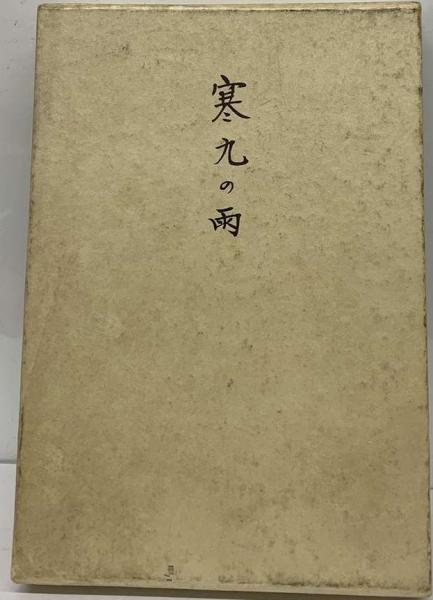 寒九の雨